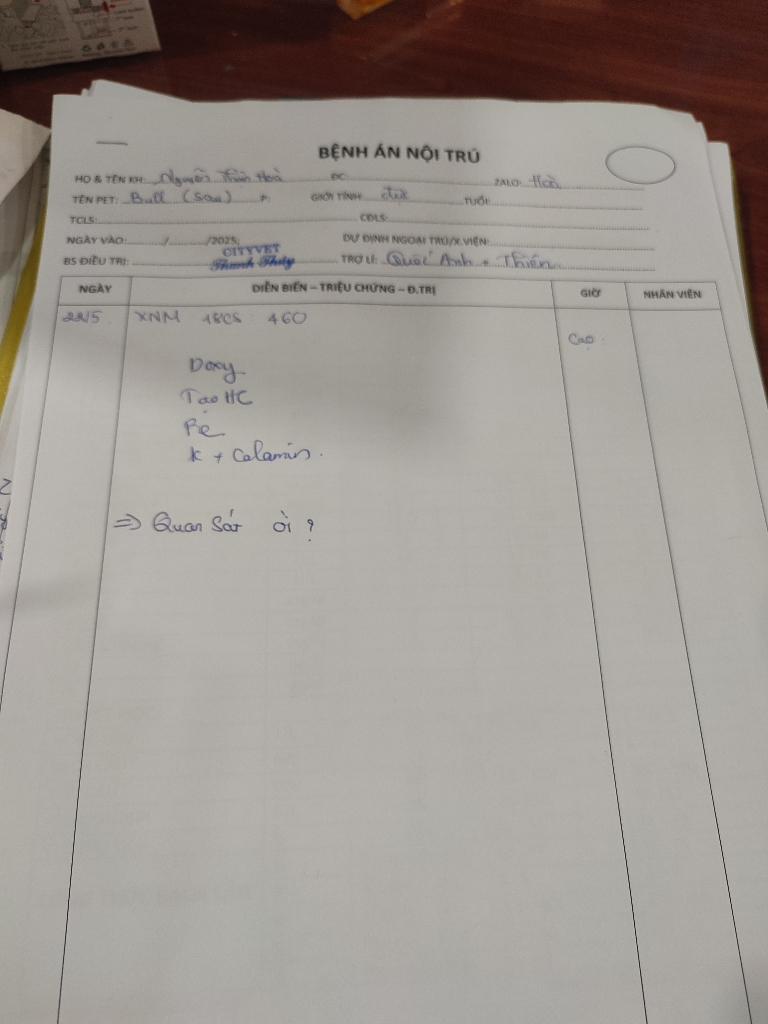 BỆNH ÁN NỘI TRÚ
HỌ & TÊN KH: Nguyễn Hoà ĐC: ZALO: Hoà
TÊN PET: Bull (Sau) GIỚI TÍNH: đực TUỔI:
TCLS: CĐLS:
NGÀY VÀO: / /2025; DỰ ĐỊNH NGOẠI TRÚ/X.VIỆN:
CITYVET
BS ĐIỀU TRỊ: Thanh Thúy TRỢ LÍ: Quốc Anh + Thiên
NGÀY DIỄN BIẾN – TRIỆU CHỨNG – Đ.TRỊ GIỜ NHÂN VIÊN
22/5 XNM 18CS: 460
Cạo:
Doxy
Tạo HC
Rẻ
K + Calamin.
=> Quan Sát ói ?